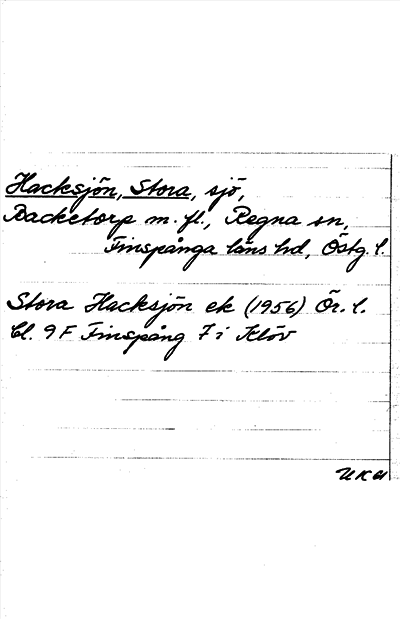 Hacksjön, Stora, sjö,
Backetorp m. fl., Regna sn,
Finspånga läns hd, Östg. l.
Stora Hacksjön ek (1956) Ör. l.
bl. 9 F Finspång 7 i Klöv